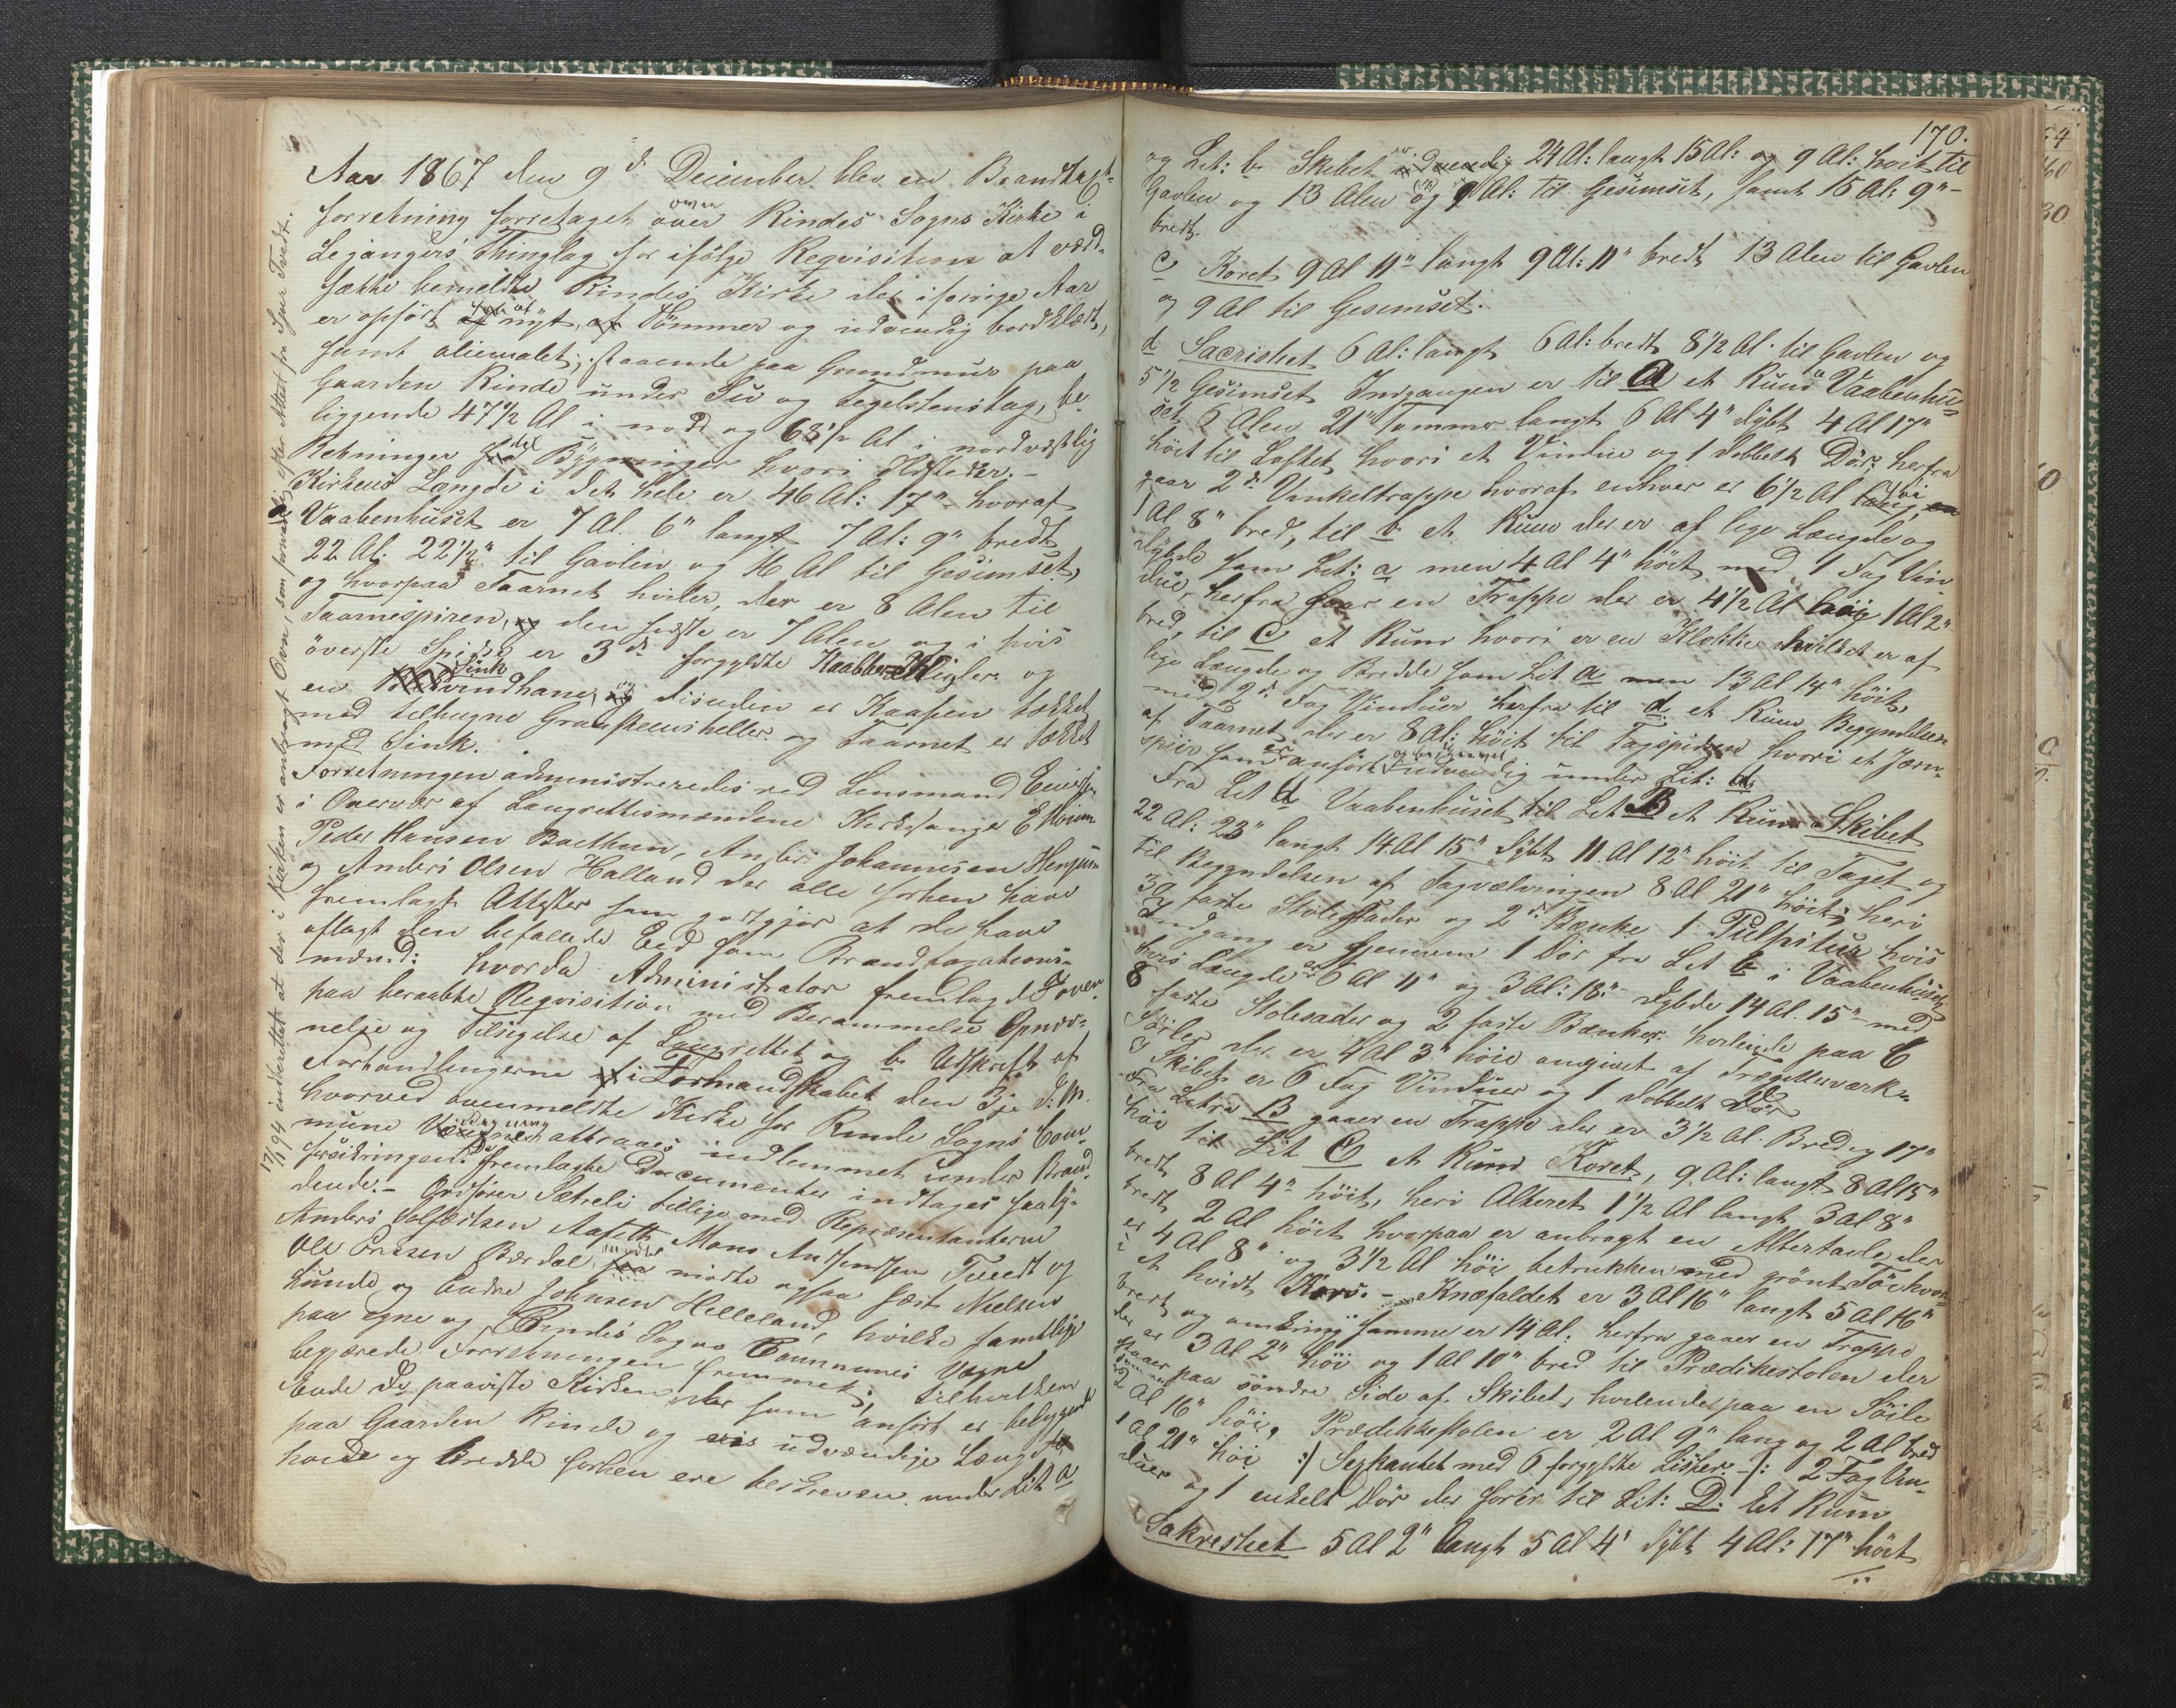 Aar 1867 den 9d December blev en Brandtaxt-
forretning forretaget over Rindes Sogns Kirke i
Leganger's Thinglag for ifölge Reqvisition at værd-
sætte bemeldte Rindes Kirke der i forrige Aar
er opfört af nyt, af Tömmer og udvendig bordklædt,
samt oliemalet, staaende paa Grundmuur paa
Gaarden Rinde under Suv og Tegelstenstag, be-
liggende 47 1/2 Al i nord og 68 1/2 Al i nordvestlig
Retninger fra Bygninger hvori Ildsteder. -
Kirkens Længde i det hele er 46 Al: 17" hvoraf
Vaabenhuset er 7 Al. 6" langt 7 Al: 9" bredt
22 Al: 22 1/2" til Gavlen og 16 Al til Gesimset,
og hvorpaa Taarnet hviler, der er 8 Alen til
Taarnespiren, og den er 7 Alen og i hvis
överste Spidse er 3de forgyldte Kugler og
en Sink vindhane, og disuden er Kaapen tækket
med tilhugne Graasteensheller og Taarnet er tækket
med Sink.
Forretningen administreredes ved Lensmand
i Overvær af Laugrettesmændene Kirkesanger
Peder Hansen Baethun, Anders Johannesen Henjum
og Anders Olsen Halland der alle forhen have
fremlagt Attester som godtgjör at de have
aflagt den befalede Eed som Brandtaxations-
mænd: hvorda Administrator fremlagde
paa beraabte Reqvisition med Berammelse
nelse og Tilsigelse af Laugrettet og b Udskrift af
Forhandlingerne i Formandskabet den 3je d: M.
hvorved ovenmeldte Kirke for Rinde Sogns Com-
mune attraaes indlemmet under Brand-
forsikringen. Fremlagte Documenter indtages saaly-
dende. - Ordförer Sætreli tillige med Repræsentanterne
Anders Aafeth Mons Tveedt og
Ole Ericsen Bærdal mödte ogsaa Nielsen
Hunde og Endre Johnsen Helleland, hvilke samtlige
paa egne og Rindes Sogns Communes Vegne
begjærede Forretningen fremmet, til hvilken
Ende de paaviste Kirken der som anfört er bebyggende
paa Gaarden Rinde og udvendige Længde
höide og Bredde forhen ere beskreven under Lit a
17/1 94 indberettet at der i Kirken er anbragt Ovn, som forsvarlig efter Attest fra Sjur Tvedt.
170.
og Lit: b Skibet udvendig 24 Al: langt 15 Al: og 9 Al: höit til
Gavlen og 13 Alen og 9 Al: til Gesimset, samt 15 Al: 9"
bredt.
c Koret 9 Al 11" langt 9 Al: 11" bredt 13 Alen til Gavlen
og 9 Al til Gesimset.
d Sacristiet 6 Al: langt 6 Al: bredt 8 1/2 Al. til Gavlen og
5 1/2 Gesimset Indgangen er til A et Ruum Vaabenhu-
set 6 Alen 21" Tommer langt 6 Al 4" dybt 4 Al 17"
höit til Loftet, hvori et Vindue og 1 dobbelt Dör, herfra
gaar 2de Vinkeltrappe hvoraf enhver er 6 1/2 Al lang,
1 Al 8" bred, til b et Ruum der er af lige Længde og
Dybde som Lit: a men 4 Al 4" höit med 1 Fag Vin-
due, herfra gaar en Trappe der er 4 1/2 Al höig 1 Al 2"
bred, til C et Ruum hvori er en Klokke hvilket er af
lige Længde og Bredde som Lit. a men 13 Al 14" höit,
med 2de Fag Vinduer herfra til d et Ruum Begyndelsen
af Taarnet der er 8 Al: höit til Tagspiren hvori et Jern-
spiir som er anfört udvendig under Lit: a.
Fra Lit a Vaabenhuset til Lit B et Ruum Skibet
22 Al: 23" langt 14 Al 15" dybt 11 Al 12" höit til Taget og
til Begyndelsen af Tagvælvingen 8 Al 21" höit; heri
30 faste Stolestader og 2de Bænke 1 Pulpitur hvis
Indgang er Gjennem 1 Dör fra Lit b i Vaabenhuset
hvis Længde er 6 Al 11" og 3 Al: 18" Dybde 14 Al. 15" med
8 faste Stolesader og 2 faste Bænker hvilende paa 6
Söiler der er 4 Al 3" höie omgivet af Trægitterværk.
I Skibet er 6 Fag Vinduer og 1 dobbelt Dör
Fra Litra B gaaer en Trappe der er 3 1/2 Al. Bred og 17"
höi til Lit C et Ruum Koret, 9 Al: langt 8 Al 15"
bredt 8 Al 4" höit, heri Alteret 1 1/2 Al langt 3 Al 8"
bredt 2 Al höit hvorpaa er anbragt en Altertavle der
er 4 Al 8" og 3 1/2 Al höi betrukken med grönt Töi hvor-
i et hvidt Kors. - Knæfaldet er 3 Al 16" langt 5 Al 16"
bredt og omkring samme er 14 Al. herfra gaaer en Trappe
der er 3 Al 2" höi og 1 Al 10" bred til Prædikestolen der
staaer paa söndre Side af Skibet, hvilende paa en Söile
2 Al 16" höi, Prædikestolen er 2 Al 9" lang og 2 Al bred
1 Al 21" höi :/ Sexkantet med 6 forgyldte Lister /: 2 Fag Vin-
duer og 1 enkelt Dör der förer til Lit: D. Et Ruum
Sakrestiet 5 Al 2" langt 5 Al 4" dybt 4 Al: 17" höit